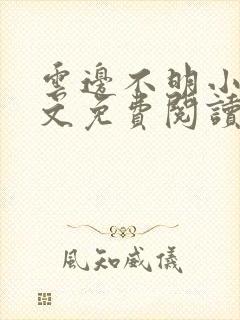 雲邊不明小
文免費閱讀
風知威儀